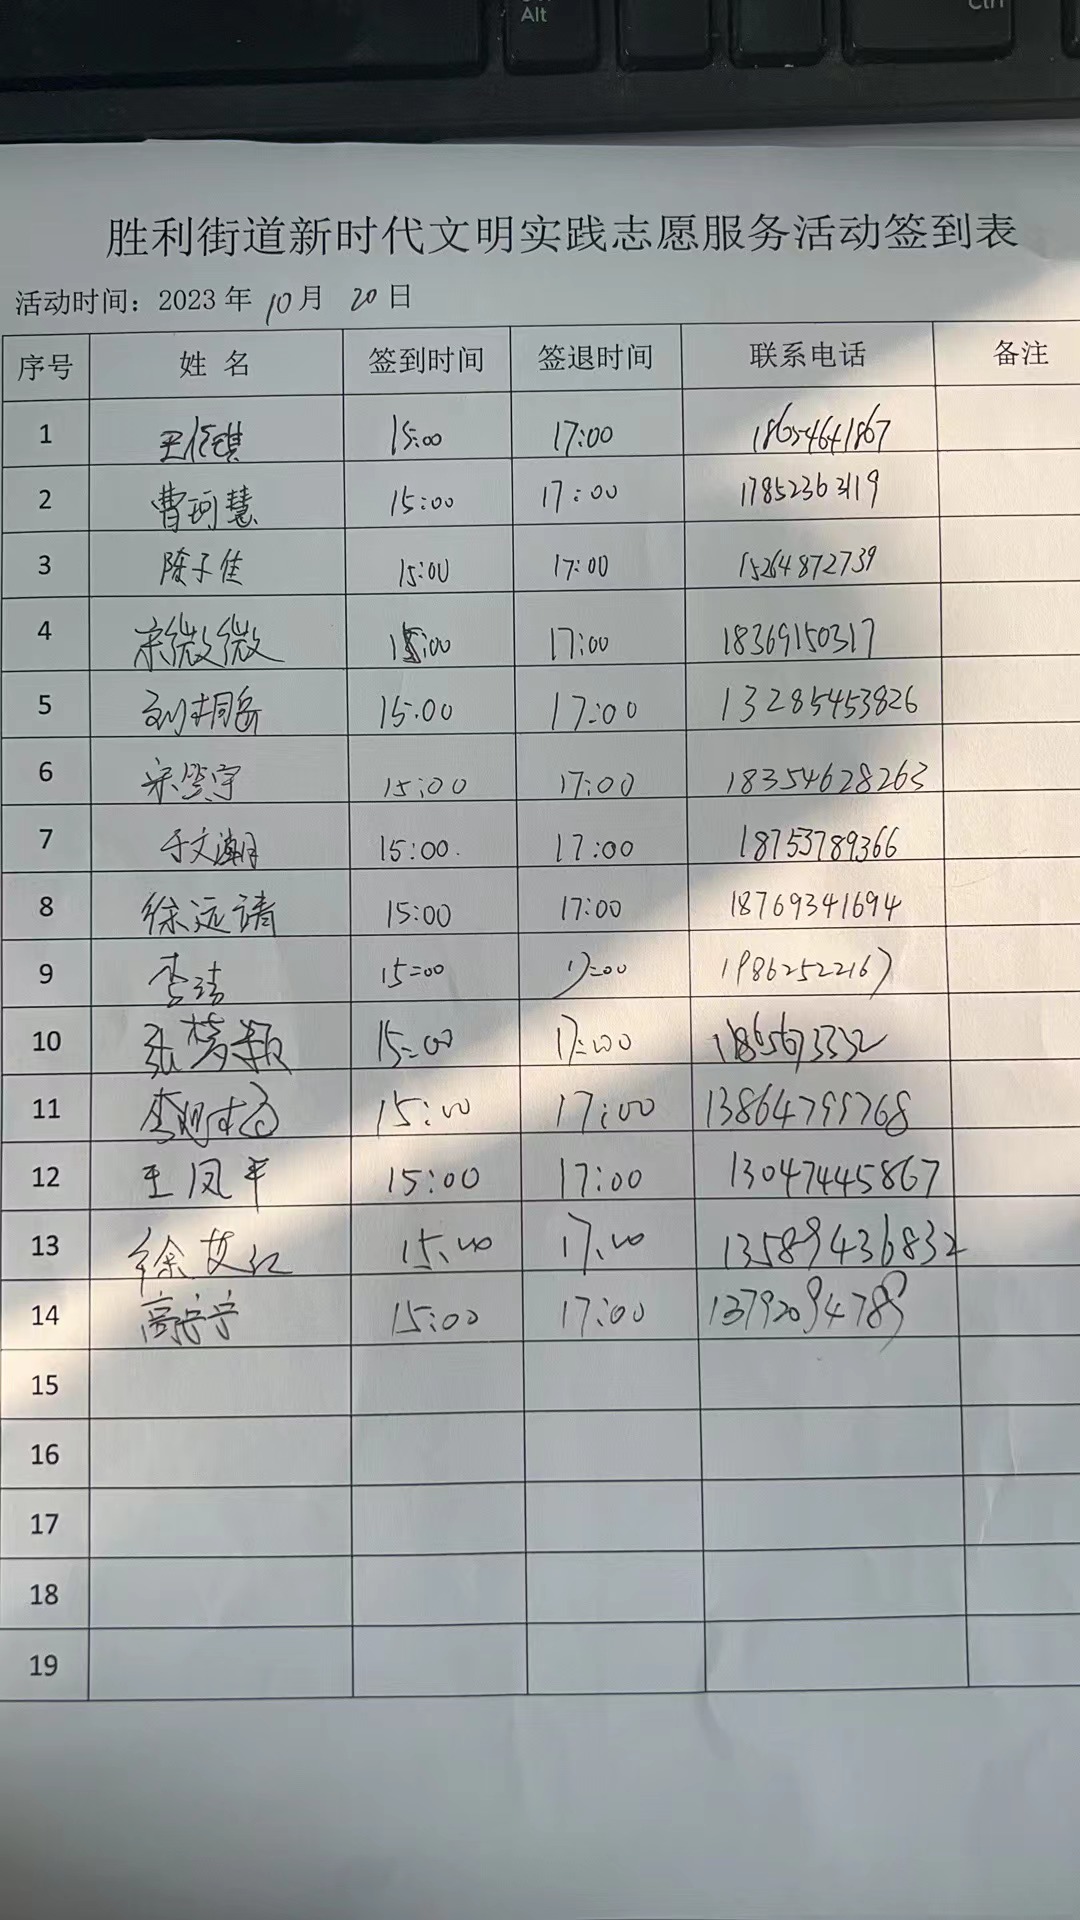 Alt
Ctrl
胜利街道新时代文明实践志愿服务活动签到表
活动时间：2023 年 10 月 20 日
序号 姓 名 签到时间 签退时间 联系电话 备注
1 15:00 17:00 18654641867
2 曹珂慧 15:00 17:00 17852363119
3 陈子佳 15:00 17:00 15264872739
4 宋微微 15:00 17:00 18369150317
5 刘桐岳 15:00 17:00 13285453826
6 15:00 17:00 18354628263
7 于文潮 15:00 17:00 18753789366
8 徐远请 15:00 17:00 18769341694
9 李洁 15=00 17=00 19862522167
10 张梦颖 15:00 17:00
11 15:00 17:00 13864799768
12 王凤平 15:00 17:00 13047445867
13 徐艾红 15:00 17:00 13589436832
14 高宁宁 15:00 17:00 13792094789
15
16
17
18
19